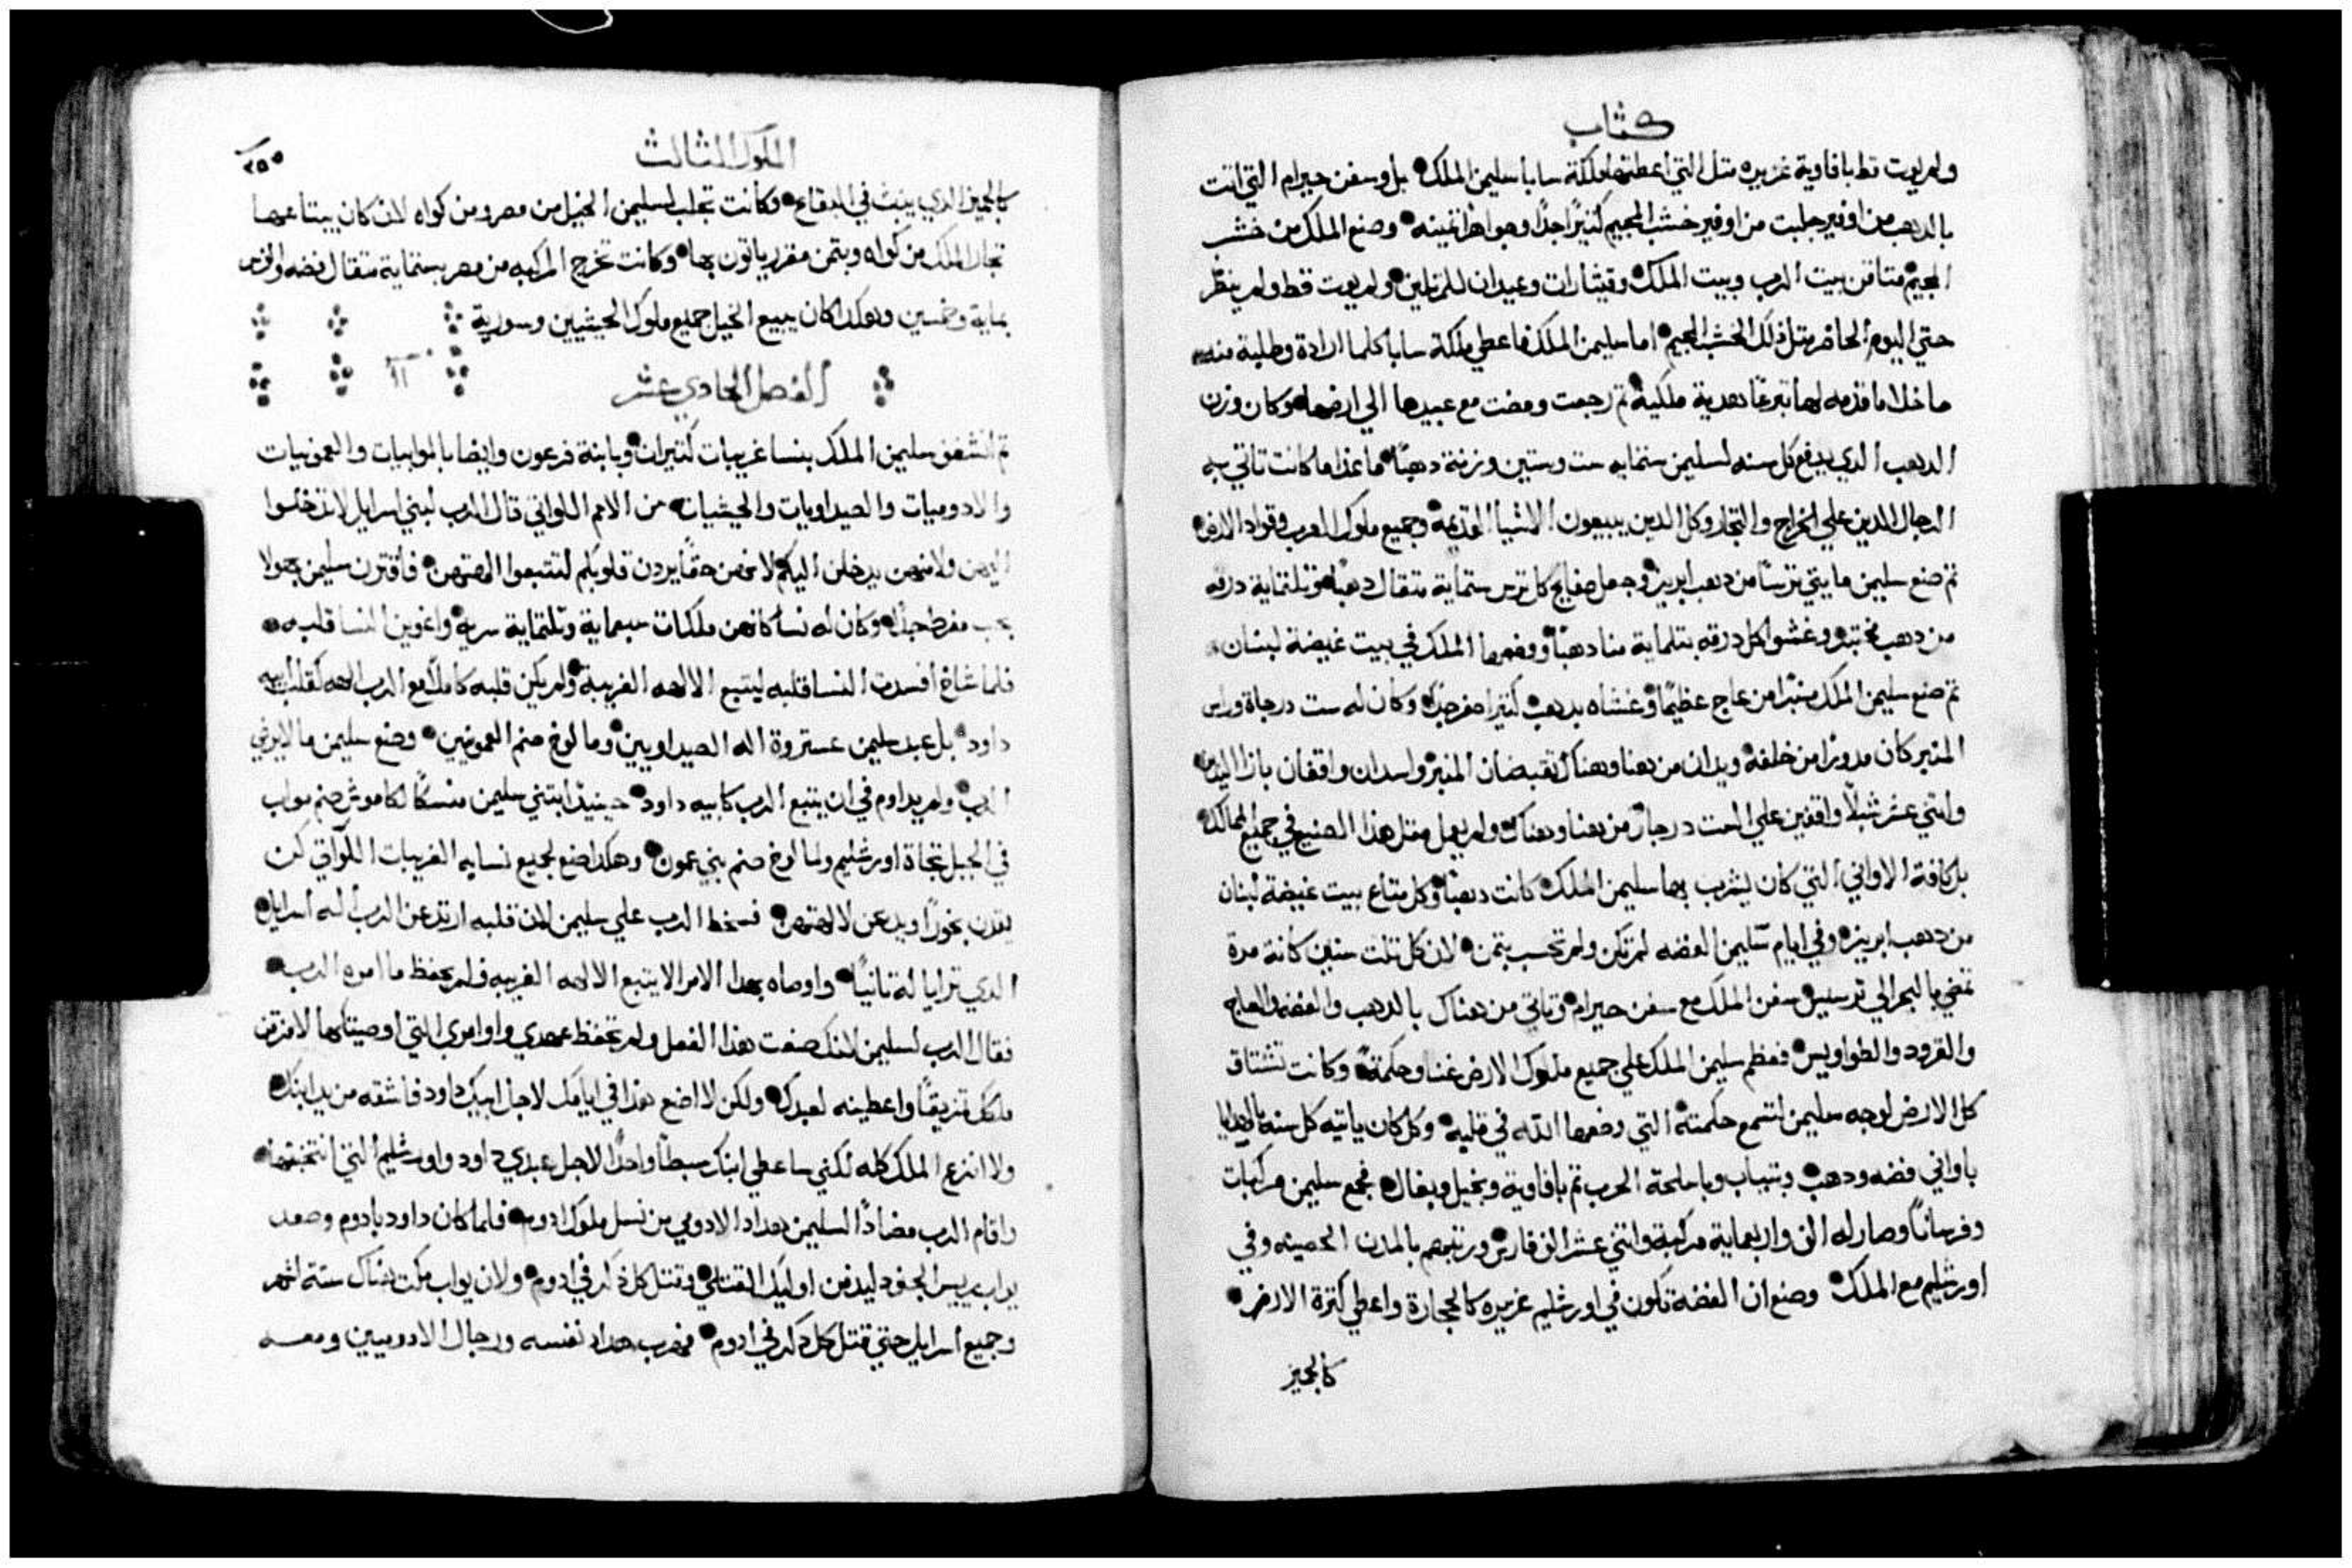 كتاب
ولم يوت قط بافاوية غزيره متل التي اعطتها ملكة سابا سليمن الملك بل وسفن حيرام التي اتت
بالدهب من اوفير جلبت من اوفير خشب الجيم كثيرًا جدًا وجواهر ثمينه وصنع الملك من خشب
الجيم متاقن بيت الرب وبيت الملك وقيثارات وعيدان للمرتلين ولم يوت قط ولم ينظر
حتي اليوم الحاضر بمثل ذلك الخشب الجيم اما سليمن الملك فاعطي ملكة سابا كلما ارادة وطلبة منه
ما خلا ما قدمه لها تبرعًا بهدية ملكية ثم رجعت ومضت مع عبيدها الي ارضها وكان وزن
الدهب الدي يدفع كل سنه لسليمن ستمايه ست وستين وزنة دهبًا ما عدا ما كانت تاتي به
الرجال الدين علي الخراج والتجار وكل الدين يبيعون الاشيا وجميع ملوك العرب وقواد الارض
تم صنع سليمن مايتي ترسًا من دهب ابريز وجعل صفايح كل ترس ستماية متقال دهبًا وتلتماية درقه
من دهب مختبر وغشوا كل درقه بتلماية منا دهبًا ووضعها الملك في بيت غيضة لبنان
تم صنع سليمن الملك منبرًا من عاج عظيمًا وغشاه بدهب كتير اصفر جدًا وكان له ست درجاة وراس
المنبر كان مدورًا من خلفه ويدان من هنا وهناك تقبضان المنبر واسدان واقفان بازا اليدين
واتني عشر شبلًا واقفين علي الست درجاة من هنا وهناك ولم يعمل متل هذا الصنيع في جميع الممالك
بل كافة الاواني التي كان يشرب بها سليمن الملك كانت دهبًا وكل متاع بيت غيضة لبنان
من دهب ابريز وفي ايام سليمن الفضه لم تكن ولم تحسب بتمن لان كل تلت سنين كانة مرة
تمضي بالبحر الي ترسيس سفن الملك مع سفن حيرام وتاتي من هناك بالدهب والفضه والعاج
والقرود والطواويس فعظم سليمن الملك علي جميع ملوك الارض غنا وحكمة وكانت تشتاق
كل الارض لوجه سليمن لتسمع حكمته التي وضعها الله في قلبه وكل كان ياتيه كل سنه بالهدايا
باواني فضه ودهب وبتياب وباسلحة الحرب تم بافاوية وبخيل وبغال فجمع سليمن مركبات
وفرسانًا وصار له الف واربعماية مركبة واتني عشر الف فارس ورتبهم بالمدن الحصينه وفي
اورشليم مع الملك وصنع ان الفضه تكون في اورشليم غزيره كالحجارة واعطي كترة الارض
كالجميز
الملوك الثالث
٢٥٥
كالجميز الدي ينبث في البقاع وكانت تجلب لسليمن الخيل من مصر ومن كواه لان كان يبتاعها
تجار الملك من كواه وبتمن مقرر ياتون بها وكانت تخرج المركبه من مصر بستماية متقال فضه والفرس
بماية وخمسين وهكدا كان يبيع الخيل جميع ملوك الحيثيين وسورية
الفصل الحادي عشر ١١
تم انشغف سليمن الملك بنسا غريبات كتيرات وبابنة فرعون وايضا بالموابيات والعمونيات
والادوميات والصيداويات والحيثيات من الامم اللواتي قال الرب لبني اسرايل لا تدخلوا
اليهن ولا منهن يدخلن اليكم لانهن حقًا يردن قلوبكم لتتبعوا الهتهن فاقترن سليمن بهولا
بحب مفرط جدًا وكان له نسا كانهن ملكات سبعماية وتلتماية سرية واغوين النسا قلبه
فلما شاخ أفسدت النسا قلبه ليتبع الالهه الغريبة ولم يكن قلبه كاملًا مع الرب الهه كقلب ابيه
داود بل عبد سليمن عستروة اله الصيداويين ومالوخ صنم العمونيين وصنع سليمن ما لا يرضي
الرب ولم يداوم في ان يتبع الرب كابيه داود حينيذ ابتني سليمن منسكًا لكاموش صنم مواب
في الجبل تجاة اورشليم ولمالوخ صنم بني عمون وهكدا صنع لجميع نسايه الغريبات اللواتي كن
يقدن بخورًا ويدعن لالهتهن فسخط الرب علي سليمن لان قلبه ارتد عن الرب اله اسرايل
الدي ترايا له تانيًا واوصاه بهدا الامر الا يتبع الالهه الغريبه فلم يحفظ ما امره الرب
فقال الرب لسليمن لانك صنعت هذا الفعل ولم تحفظ عهدي واوامري التي اوصيتك بها لامزقن
ملكك تمزيقًا واعطينه لعبدك ولكن لا اصنع هذا في ايامك لاجل ابيك داود فاشقه من يد ابنك
ولا انزع الملك كله لكني ساعطي ابنك سبطًا واحدًا لاجل عبدي داود واورشليم التي انتخبتها
واقام الرب مضادًا لسليمن هداد الادومي من نسل ملوك ادوم فلما كان داود بادوم وصعد
يواب رييس الجنود ليدفن اوليك القتلي وقتل كل ذكر في ادوم ولان يواب مكت هناك ستة اشهر
وجميع اسرايل حتي قتل كل دكر في ادوم فهرب هداد نفسه ورجال الادوميين ومعه